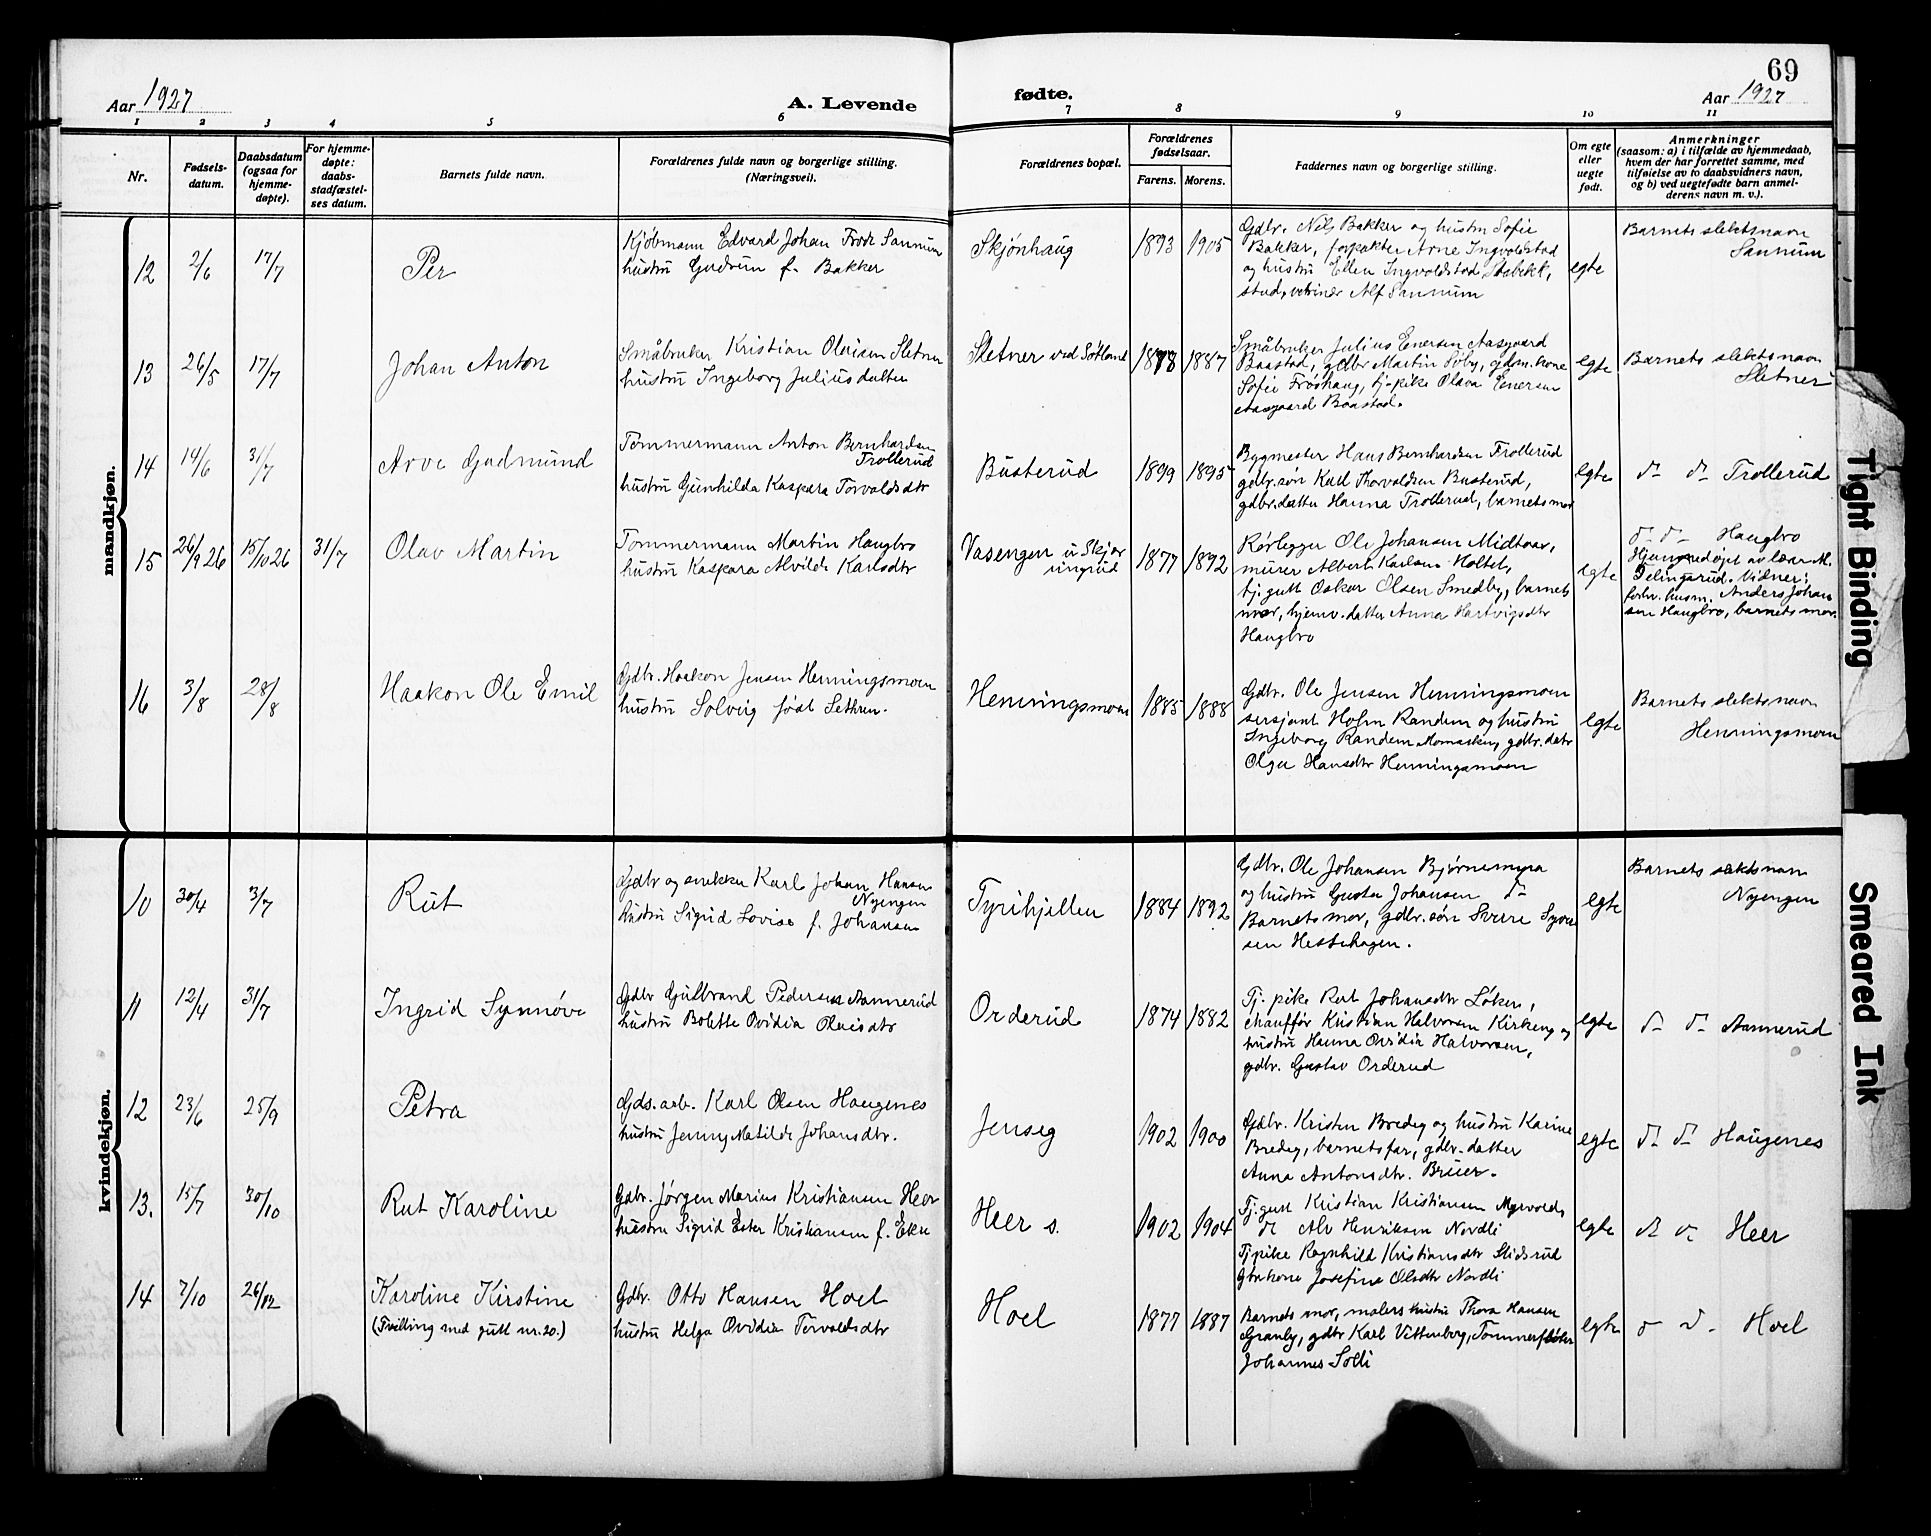 69
Aar 1927
A. Levende
fødte.
Aar 1927
1 2 3 4 5 6 7 8 9 10 11
Nr.
Fødsels-
datum.
Daabsdatum
(ogsaa for
hjemme-
døpte).
For hjemme-
døpte:
daabs-
stadfæstel-
ses datum.
Barnets fulde navn.
Forældrenes fulde navn og borgerlige stilling.
(Næringsvei).
Forældrenes bopæl.
Forældrenes
fødselsaar.
Farens. Morens.
Faddernes navn og borgerlige stilling.
Om egte
eller
uegte
født.
Anmerkninger
(saasom: a) i tilfælde av hjemmedaab,
hvem der har forrettet samme, med
tilføielse av to daabsvidners navn,
og b) ved uegtefødte barn anmel-
derens navn m. v.).
mandkjøn.
12 2/6 17/7 Per
Kjøbmann Edvard Johan Frode Sannum
hustru Gudrun f. Bakker
Skjønhaug 1893 1905
Gdbr. Nils Bakker og hustru Sofie
Bakker, forpakter Arne Ingvoldstad
og hustru Ellen Ingvoldstad Stabekk,
stud. veterinær Alf Sannum
egte
Barnets slektsnavn
Sannum
13 26/5 17/7 Johan Anton
Småbruker Kristian Olaisen Sletner
hustru Ingeborg Juliusdatter
Sletner ved Sötland 1878 1887
Småbruker Julius Enersen Aasgaard
Baastad, gdbr Martin Soby, gdm.kone
Sofie Fröshaug, tj.pike Olava Enersen
Aasgaard Baastad.
egte
Barnets slektsnavn
Sletner
14 14/6 31/7 Arve Gudmund
Tømmermann Anton Bernhardsen
Trollerud
hustru Gunhilda Kaspara Torvaldsdtr
Busterud 1899 1895
Bygmester Hans Bernhardsen Trollerud
gdbr.søn Karl Thorvaldsen Busterud,
gdbr.datter Hanna Trollerud, barnets mor
egte
do do Trollerud
15 26/9 26 15/10 26 31/7 Olav Martin
Tømmermann Martin Haugbro
hustru Kaspara Alvilde Karlsdtr
Vasengen u Skjør
ungrud 1877 1892
Rørlegger Ole Johansen Midtaas,
murer Albert Karlsen Holtet,
tj.gutt Oskar Olsen Smedby, barnets
mor, hjemv.datter Anna Hartvigsdtr
Haugbro
egte
do do Haugbro
Hjemmedøpt av lærer M.
Delingsrud. Vidner:
forhv. husm. Anders Johan
sen Haugbro, barnets mor.
16 3/8 28/8 Haakon Ole Emil
Gdbr. Haakon Jensen Henningsmoen
hustru Solveig født Sethren.
Henningsmoen 1885 1888
Gdbr. Ole Jensen Henningsmoen
sersjant Hofm Randem og hustru
Ingeborg Randem Momarken, gdbr.datr
Olga Hansdtr Henningsmoen
egte
Barnets slektsnavn
Henningsmoen
kvindekjøn.
10 30/4 3/7 Rut
Gdbr og snekker Karl Johan Hansen
Nyengen
hustru Sigrid Lovise f. Johansen
Tyrihjellen 1884 1892
Gdbr. Ole Johansen Bjørnemyra
og hustru Gusta Johansen do
Barnets mor, gdbr.søn Sverre Syver
sen Hestehagen.
egte
Barnets slektsnavn
Nyengen
11 12/4 31/7 Ingrid Synnøve
Gdbr Gulbrand Pedersen Aannerud
hustru Bolette Ovidia Olaisdtr
Orderud 1874 1882
Tj. pike Rut Johansdtr Løken,
chauffør Kristian Halvorsen Kirkeng og
hustru Hanna Ovidia Halvorsen,
gdbr. Gustav Orderud
egte
do do Aannerud
12 23/6 25/9 Petra
Gds.arb. Karl Olsen Haugenes
hustru Jenny Matilde Johansdtr.
Jenseg 1902 1900
Gdbr. Kristen Bredeg og hustru Karine
Bredeg, barnets far, gdbr.datter
Anna Antonsdtr. Breier.
egte
do do Haugenes
13. 15/7 30/10 Rut Karoline
Gdbr. Jørgen Marius Kristiansen Heer
hustru Sigrid Ester Kristiansen f. Eken
Heer s. 1902 1904
Tj.gutt Kristian Kristiansen Myrvold,
do Alv Henriksen Nordli
Tjpike Ragnhild Kristiansdtr Slidsrud
Gbrkone Josefine Olsdtr Nordli
egte
do do Heer
14 7/10 26/12 Karoline Kirstine
(Tvilling med gutt nr. 20.)
Gdbr. Otto Hansen Hoel
hustru Helga Ovidia Torvaldsdtr
Hoel 1877 1887
Barnets mor, malers hustru Thora Hansen
Granly, gdbr Karl Vittenberg, Tømmerfløter
Johannes Solli
egte
do do Hoel
Tight Binding
Smeared Ink